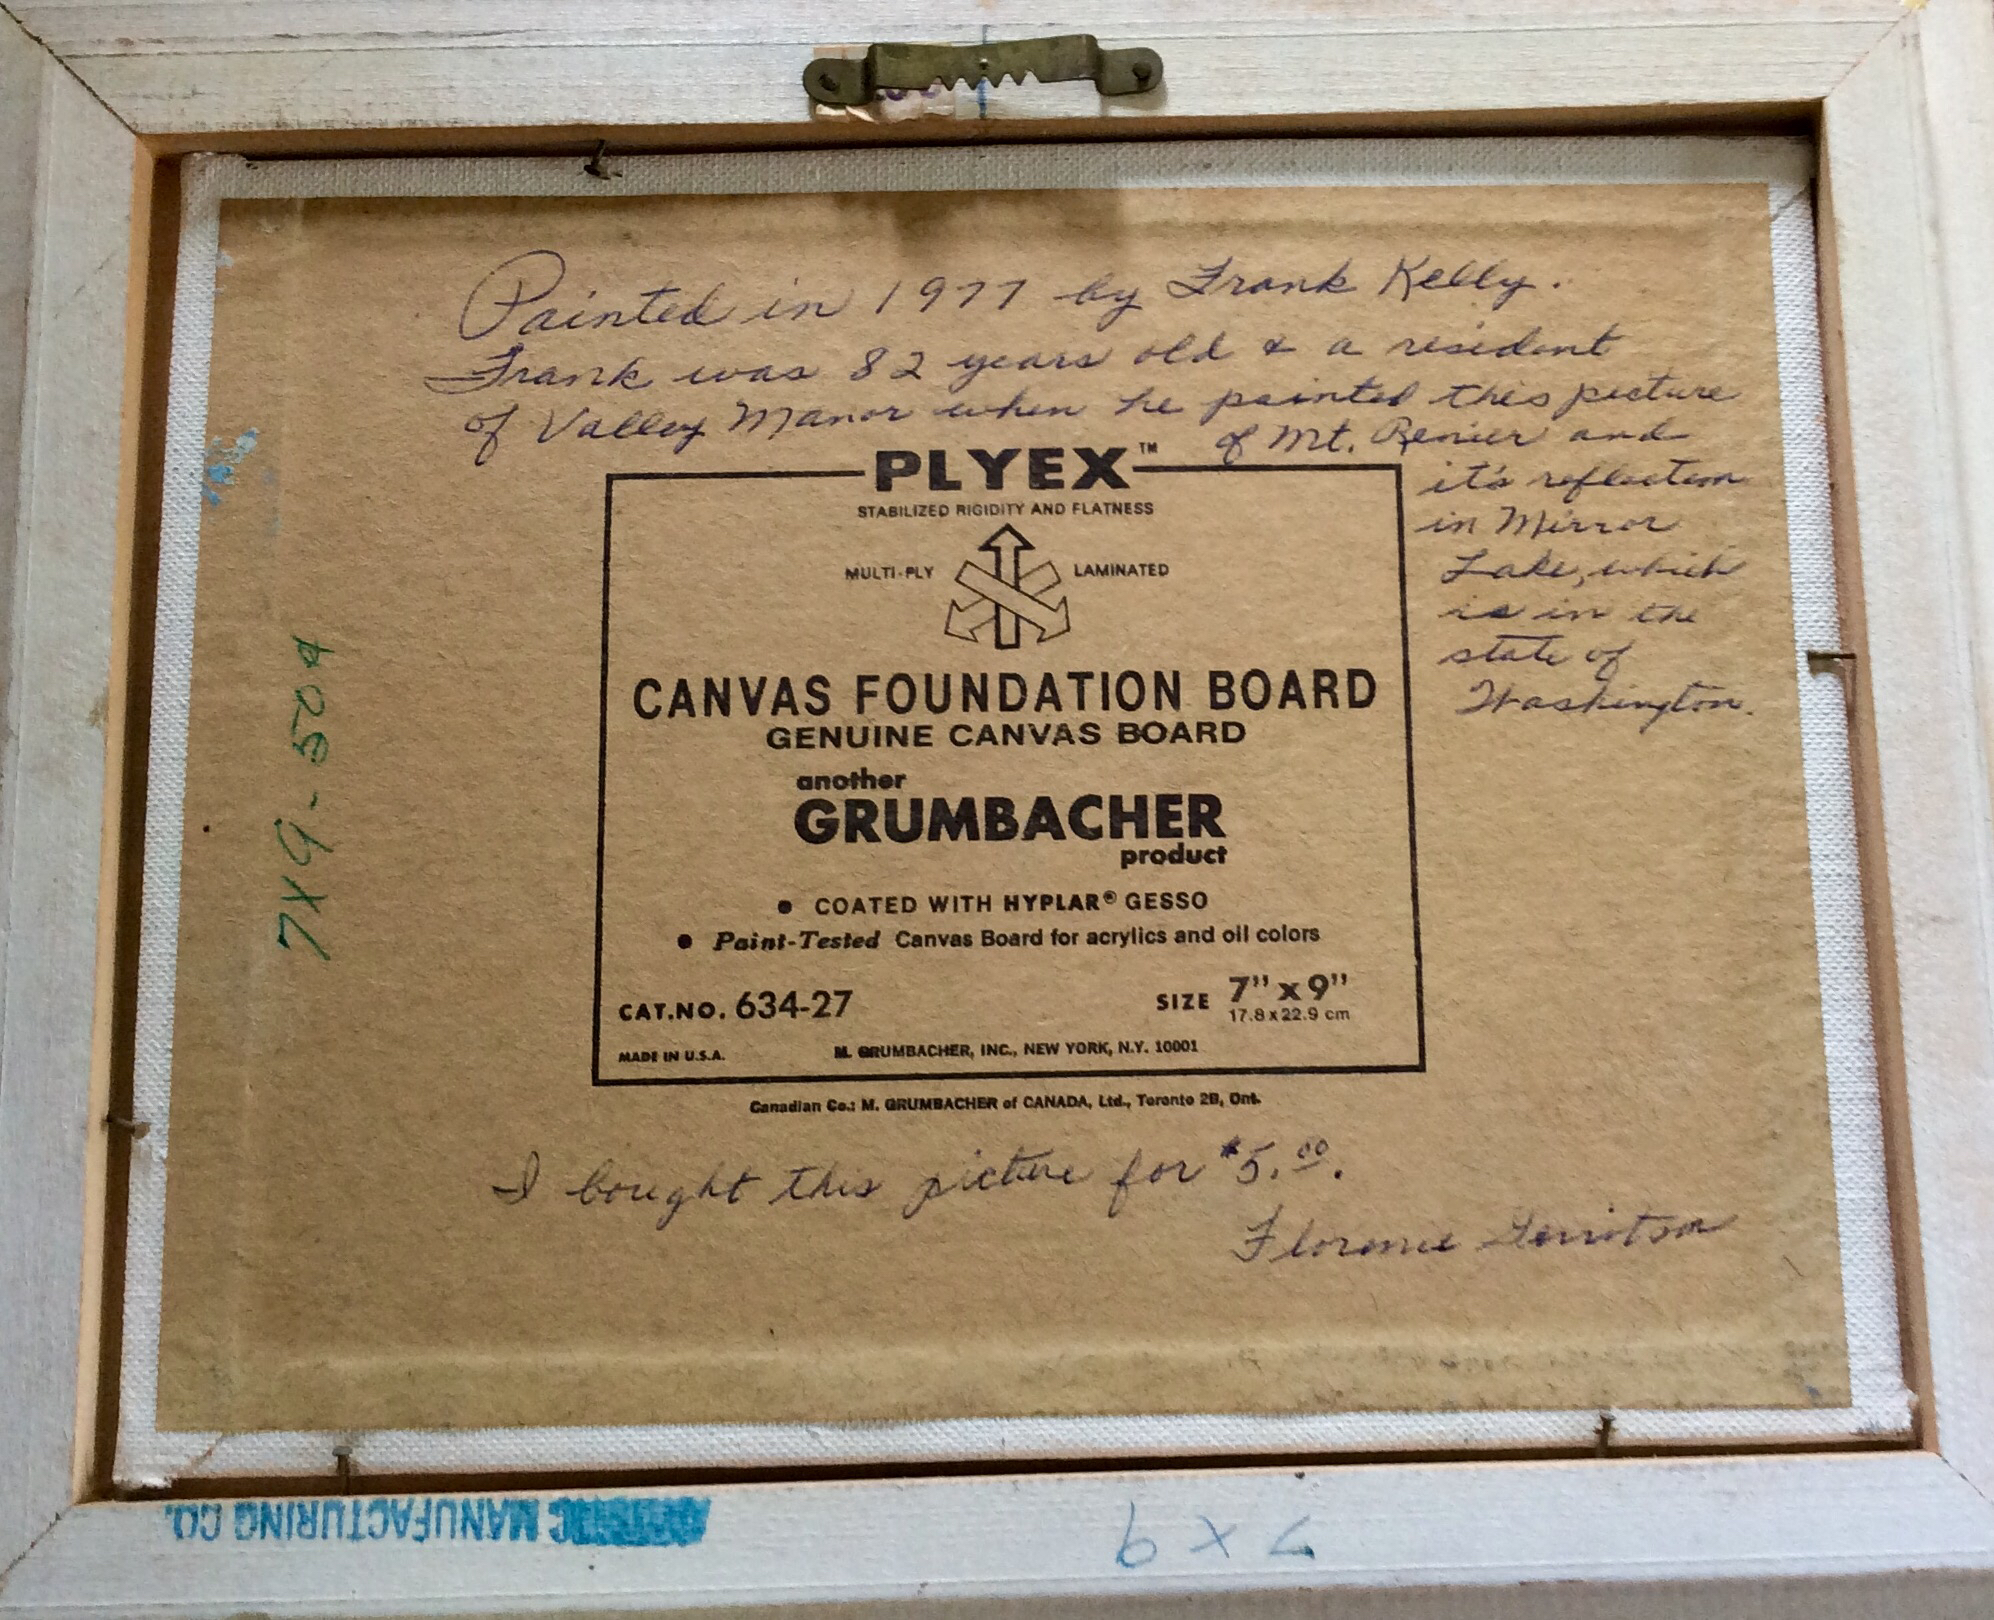 Painted in 1977 by Frank Kelly.
Frank was 82 years old & a resident
of Valley Manor when he painted this picture
of Mt. Renier and
it's reflection
in Mirror
Lake, which
is in the
state of
Washington.
PLYEX™
STABILIZED RIGIDITY AND FLATNESS
MULTI-PLY LAMINATED
CANVAS FOUNDATION BOARD
GENUINE CANVAS BOARD
another
GRUMBACHER
product
• COATED WITH HYPLAR® GESSO
• Paint-Tested Canvas Board for acrylics and oil colors
CAT.NO. 634-27 SIZE 7" x 9"
17.8 x 22.9 cm
MADE IN U.S.A. M. GRUMBACHER, INC., NEW YORK, N.Y. 10001
Canadian Co.: M. GRUMBACHER of CANADA, Ltd., Toronto 2B, Ont.
7X9-504
I bought this picture for $5.00.
Florence
MANUFACTURING CO.
7 x 9